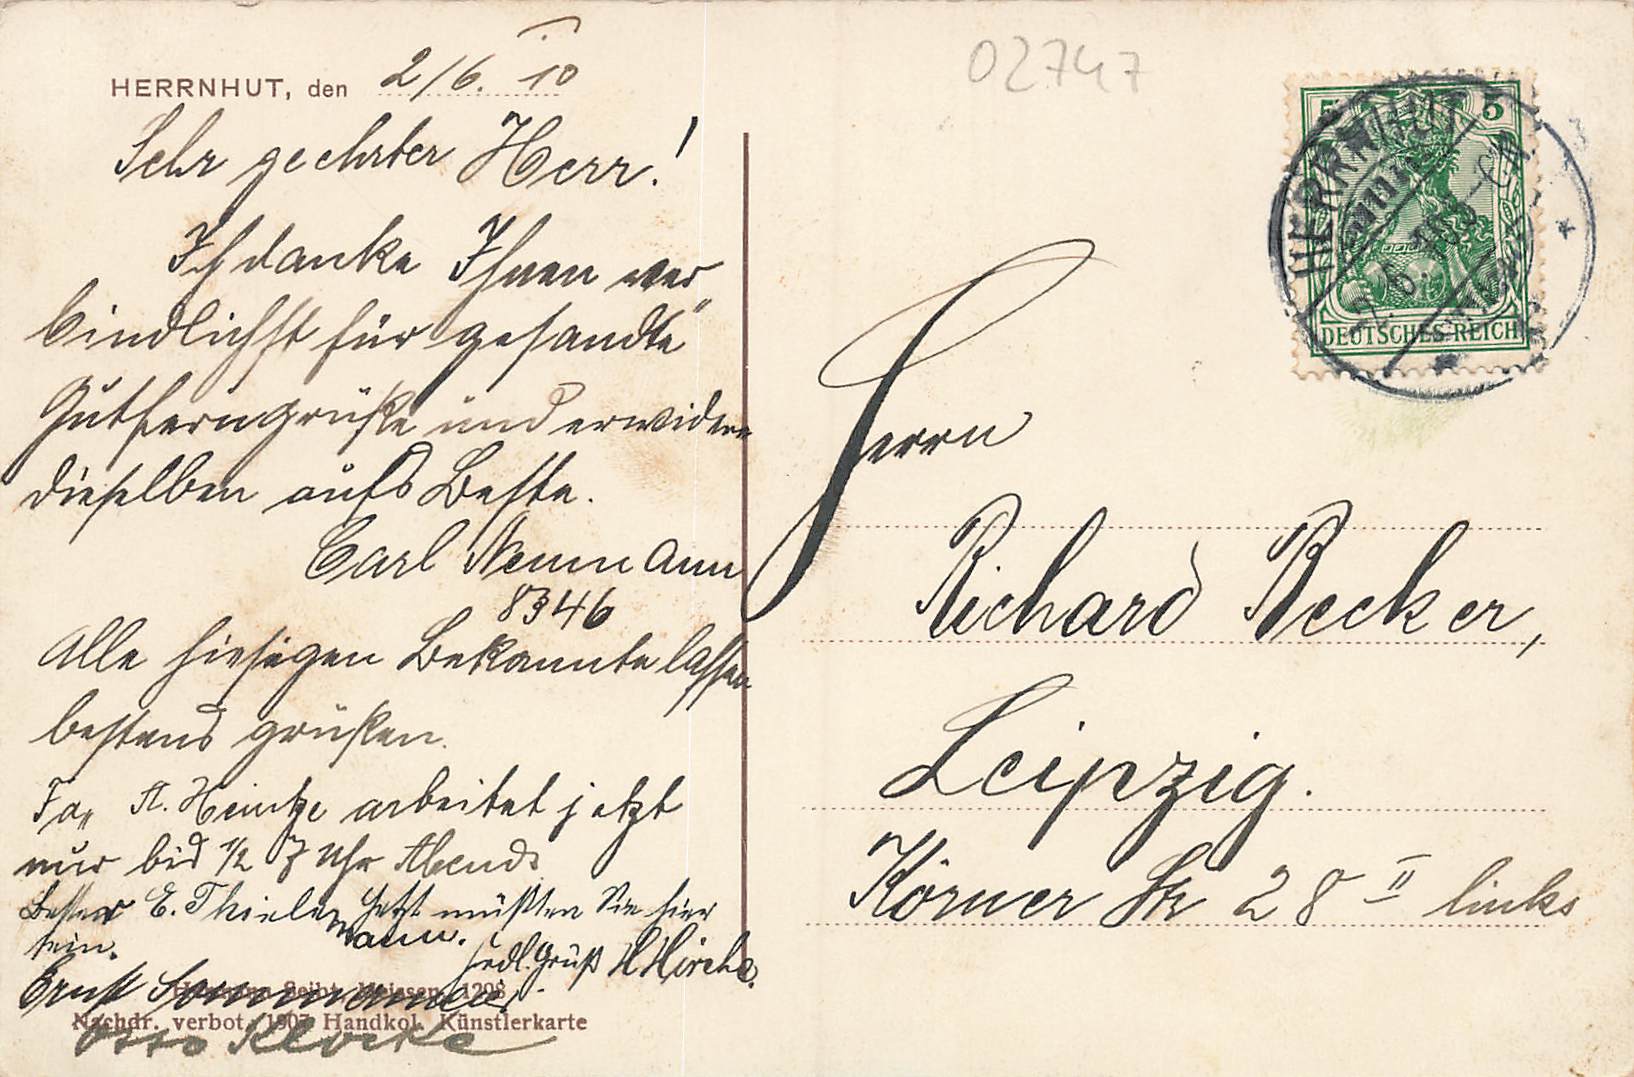 02747
HERRNHUT, den 2/6. 10
Sehr geehrter Herr!
Ich danke Ihnen ver
bindlichst für gesandte
Gutferngrüße und erwidere
dieselben aufs Beste.
Carl Neumann
8346
Alle hiesigen Bekannte lassen
bestens grüßen.
Fa. A. Heintze arbeitet jetzt
nur bis 1/2 7 Uhr Abends
Bester E. Thielemann. Jetzt müßten Sie hier
sein. frdl. Gruß H
Ernst
Otto Klocke
Meissen 1298
Nachdr. verbot. 1907 Handkol. Künstlerkarte
5 5
DEUTSCHES REICH
HERRNHUT
Herrn
Richard Becker,
Leipzig.
Körner Str 28 II links